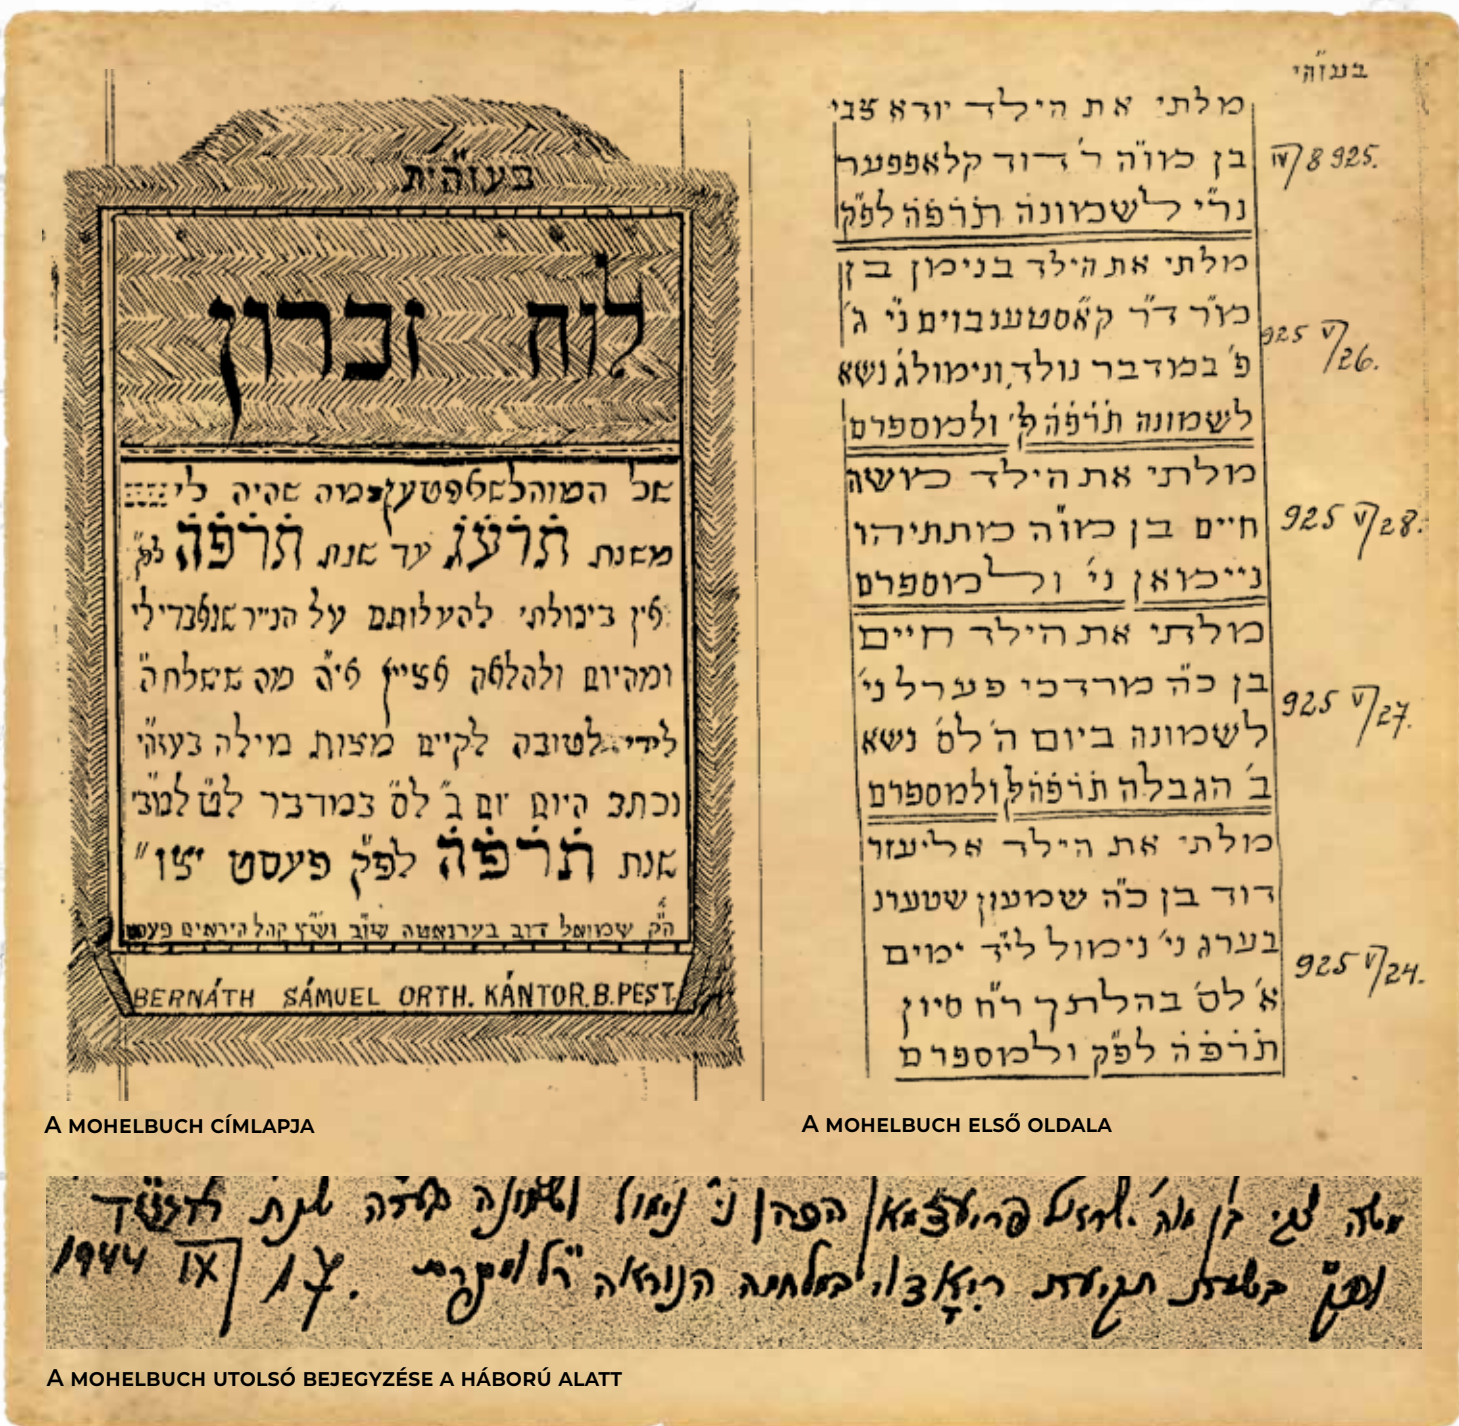 בעזה״ית
לוח זכרון
של המוהל שאפטען מה שהיה לי
משנת תרע״ג עד שנת תרפ״ה לפ״ק
אין ביכולתי להעלותם על הנייר שנאבדו לי
ומהיום ולהלאה אציין אי״ה מה ששלח ה׳
לידי לטובה לקיים מצות מילה בעזה״י
נכתב היום יום ב׳ לס׳ במדבר ל״ט למב״י
שנת תרפ״ה לפ״ק פעסט יצ״ו
הק׳ שמואל דוב בערנאטה שו״ב וש״ץ קהל היראים פעסט
BERNÁTH SÁMUEL ORTH. KÁNTOR. B.PEST.
A MOHELBUCH CÍMLAPJA
בעזה״י
מלתי את הילד יודא צבי
בן מוו״ה ר׳ דוד קלאפפער
נר״י לשמונה תרפ״ה לפ״ק
IV/8 925.
מלתי את הילד בנימין בן
מו״ר ד״ר קאסטענבוים ני׳ ג׳
פ׳ במדבר נולד, ונימול ג׳ נשא
לשמונה תרפ״ה לפ״ק ולמוספרם
925 V/26.
מלתי את הילד משה
חיים בן מוו״ה מתתיהו
ניימאן ני׳ ולמוספרם
925 V/28.
מולתי את הילד חיים
בן כ״ה מרדכי פערל ני׳
לשמונה ביום ה׳ לס׳ נשא
ב׳ הגבלה תרפ״ה לפ״ק ולמספרם
925 V/27.
מלתי את הילד אליעזר
דוד בן כ״ה שמעון שטערנ
בערג ני׳ נימול לי״ד ימים
א׳ לס׳ בהלתך ר״ח סיון
תרפ״ה לפ״ק ולמוספרם
925 V/24.
A MOHELBUCH ELSŐ OLDALA
משה צבי בן פריעדמאן הכהן ני׳ נימול לשמונה שנת
בשעת תקיעת במלחמה הנוראה
1944 IX 17.
A MOHELBUCH UTOLSÓ BEJEGYZÉSE A HÁBORÚ ALATT